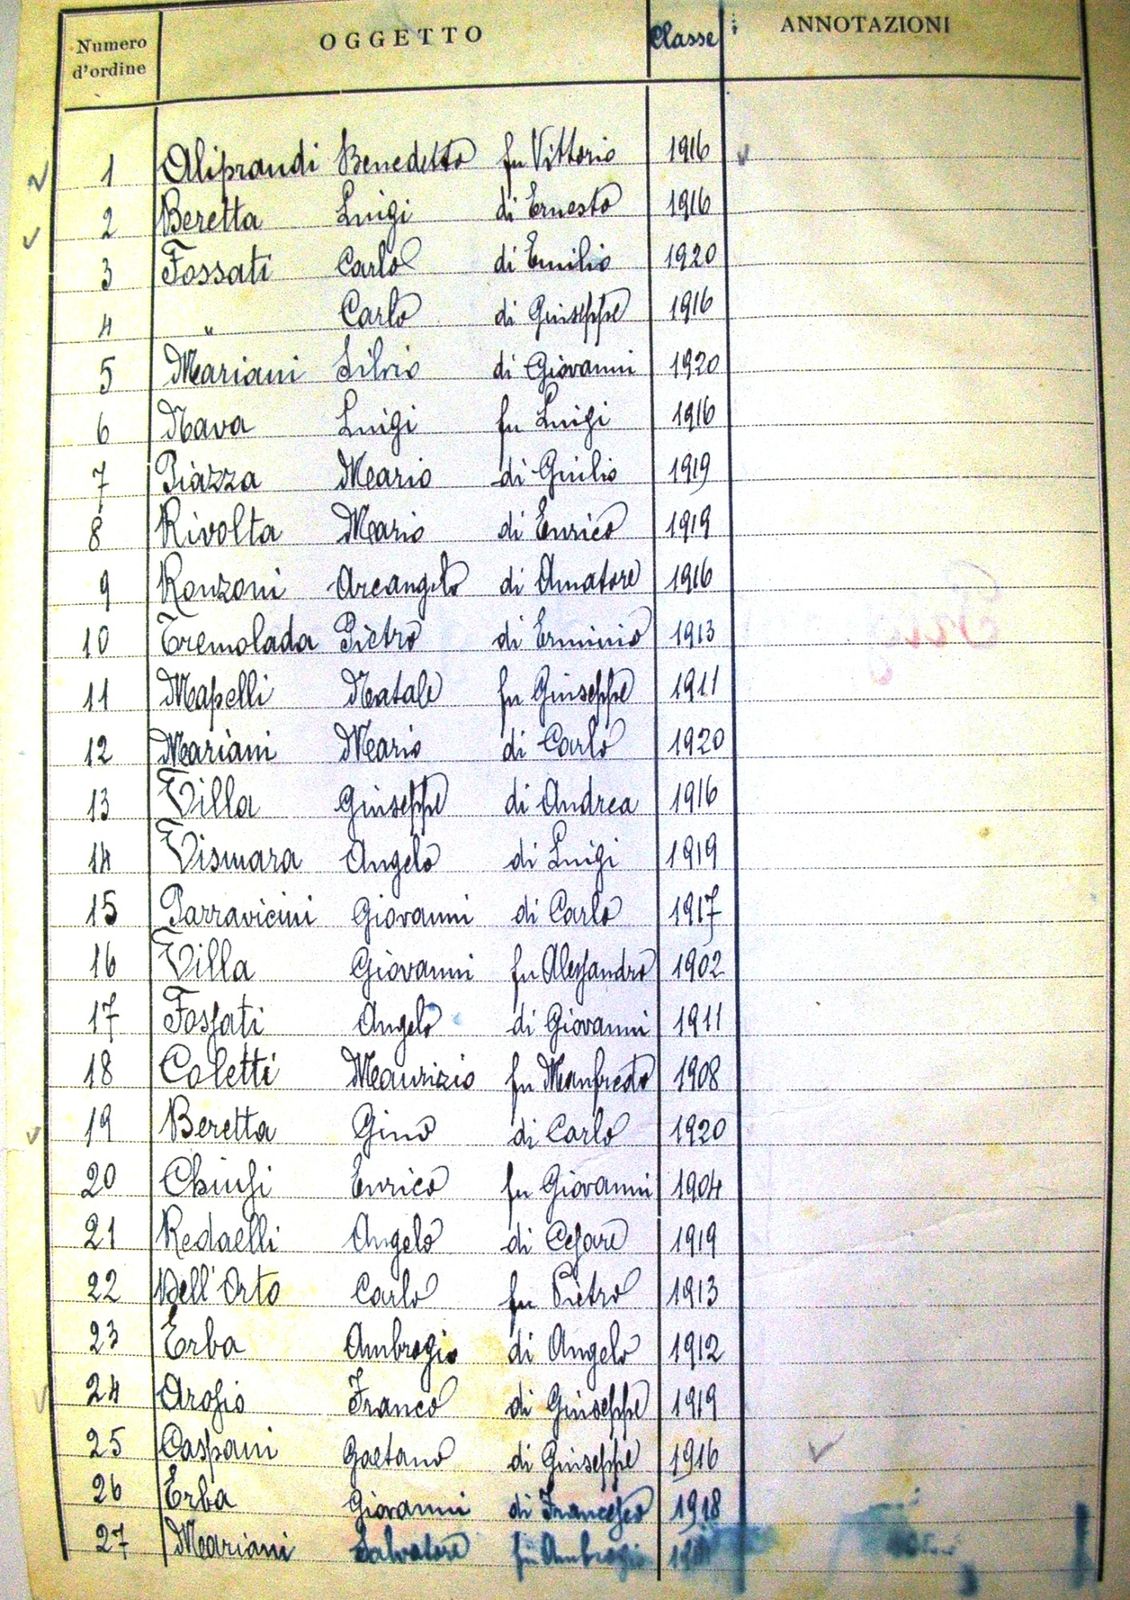 Numero d'ordine OGGETTO Classe ANNOTAZIONI
1 Aliprandi Benedetto fu Vittorio 1916
2 Beretta Luigi di Ernesto 1916
3 Fossati Carlo di Emilio 1920
4 " Carlo di Giuseppe 1916
5 Mariani Silvio di Giovanni 1920
6 Nava Luigi fu Luigi 1916
7 Piazza Mario di Giulio 1919
8 Rivolta Mario di Enrico 1919
9 Ronzoni Arcangelo di Amatore 1916
10 Tremolada Pietro di Erminio 1913
11 Mapelli Natale fu Giuseppe 1911
12 Mariani Mario di Carlo 1920
13 Villa Giuseppe di Andrea 1916
14 Vismara Angelo di Luigi 1919
15 Parravicini Giovanni di Carlo 1917
16 Villa Giovanni fu Alessandro 1902
17 Fossati Angelo di Giovanni 1911
18 Coletti Maurizio fu Manfredo 1908
19 Beretta Gino di Carlo 1920
20 Chiusi Enrico fu Giovanni 1904
21 Redaelli Angelo di Cesare 1919
22 Dell'Orto Carlo fu Pietro 1913
23 Erba Ambrogio di Angelo 1912
24 Arosio Franco di Giuseppe 1919
25 Caspani Gaetano di Giuseppe 1916
26 Erba Giovanni di Francesco 1918
27 Mariani Salvatore fu Ambrogio